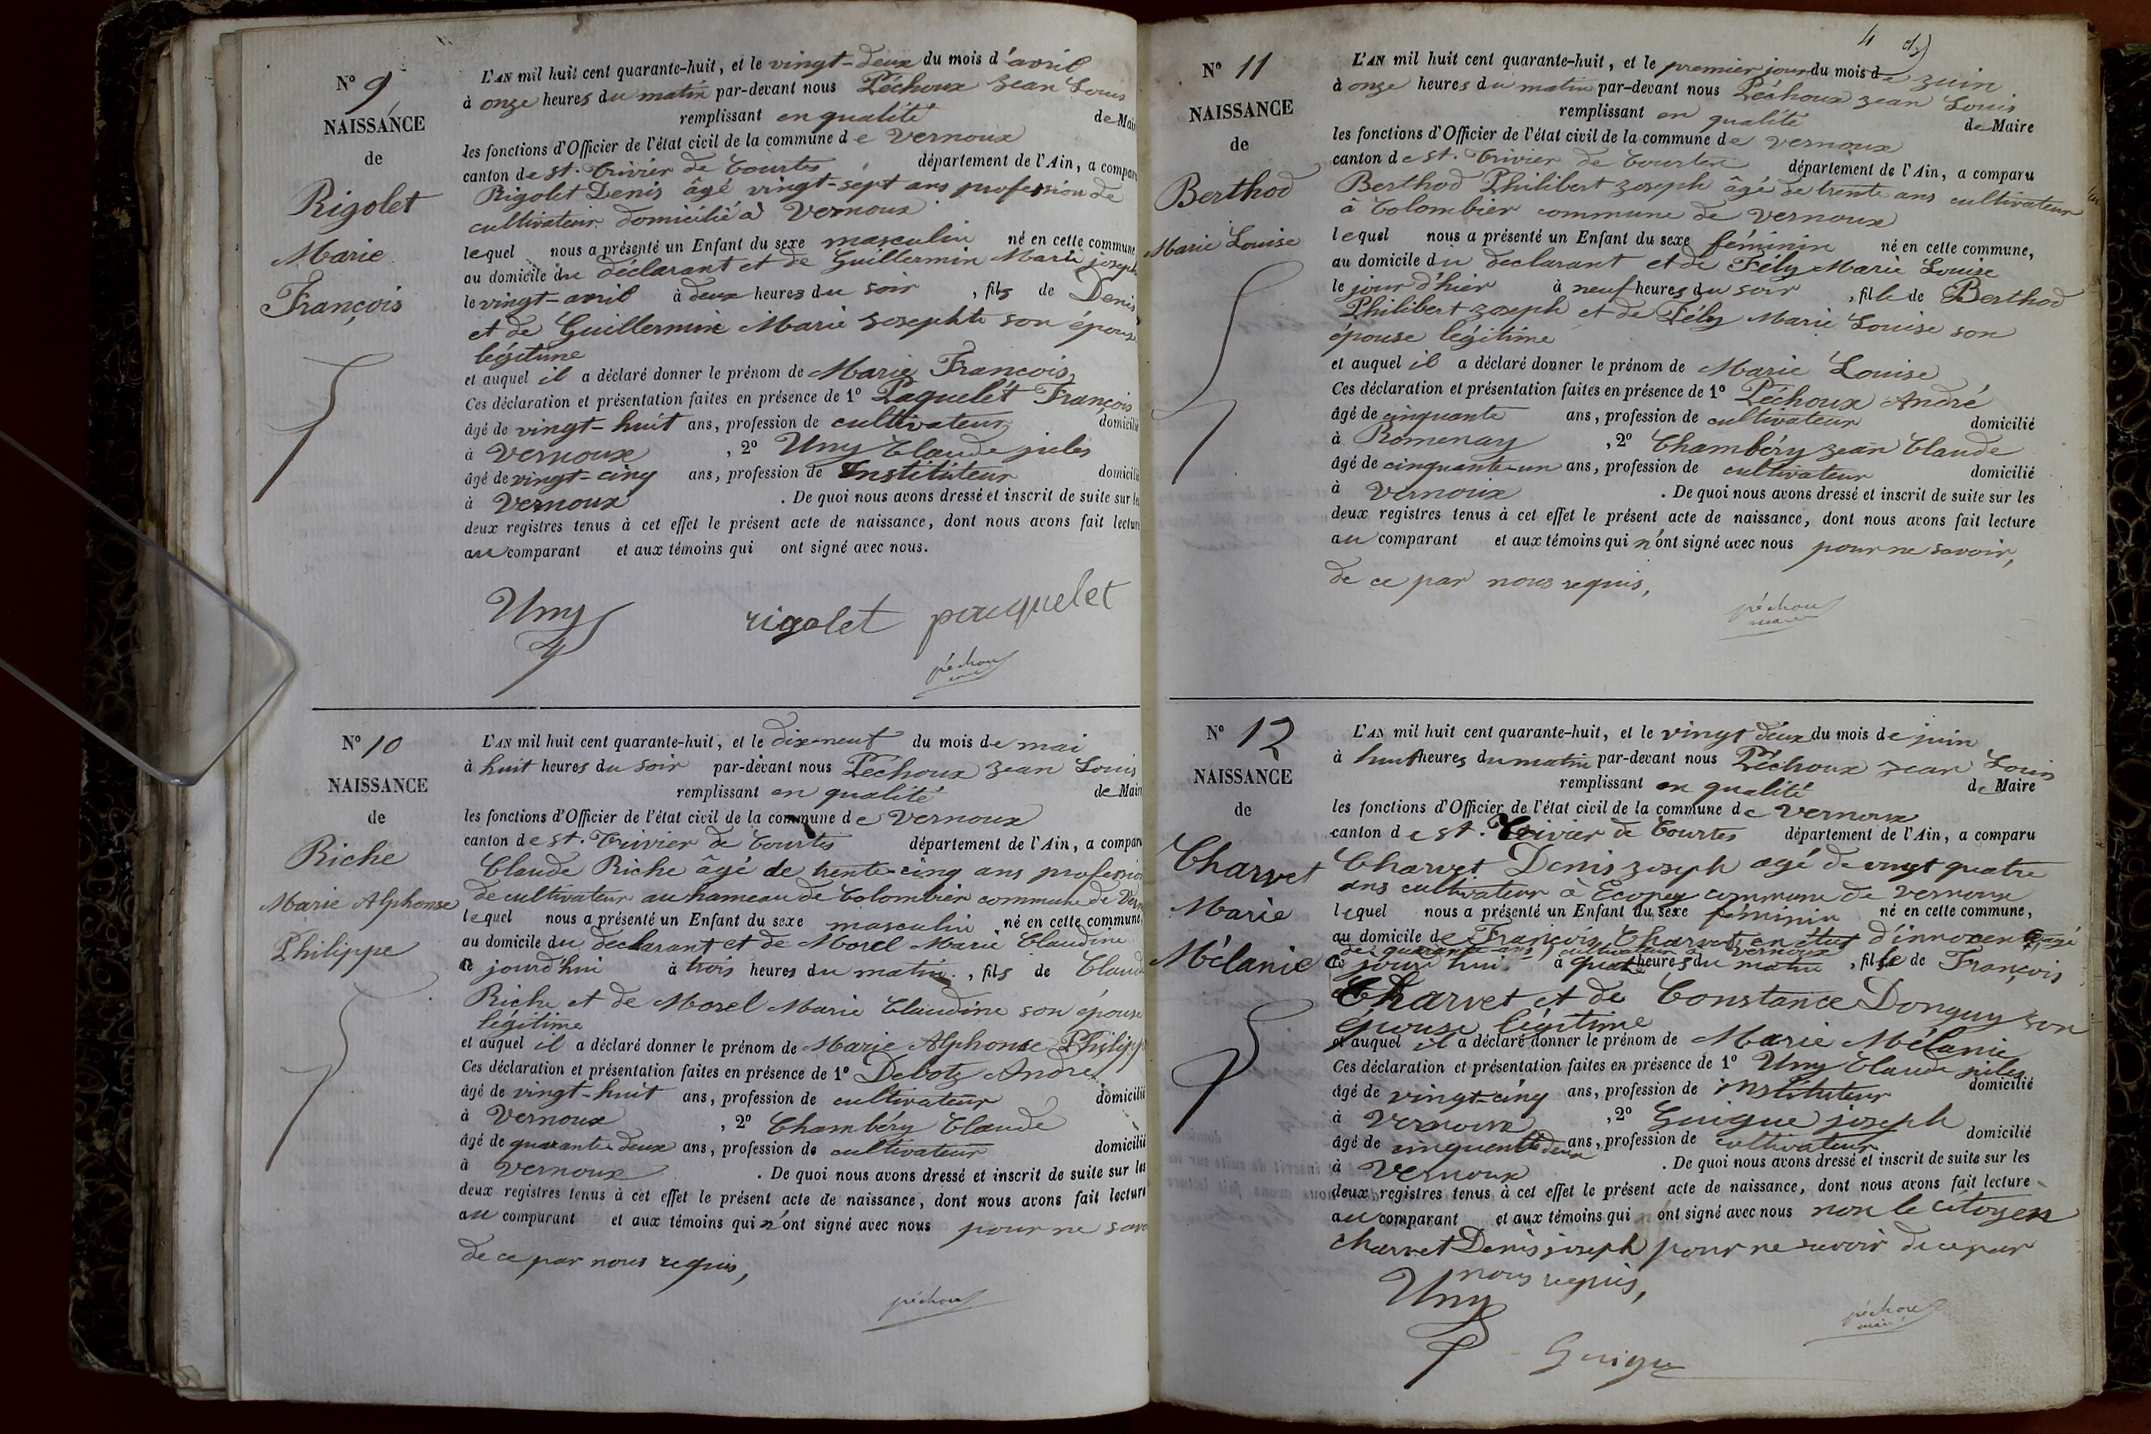 N° 9
NAISSANCE
de
Rigolet
Marie
François
L'AN mil huit cent quarante-huit, et le vingt-deux du mois d'avril
à onze heures du matin par-devant nous Péchoux Jean Louis
remplissant en qualité de Mair
les fonctions d'Officier de l'état civil de la commune de Vernoux
canton de St. Trivier de Courtes département de l'Ain, a comparu
Rigolet Denis âgé vingt-sept ans profession de
cultivateur domicilié à Vernoux
lequel nous a présenté un Enfant du sexe masculin né en cette commune,
au domicile du déclarant et de Guillermin Marie joseph
le vingt-avril à deux heures du soir, fils de Denis
et de Guillermin Marie Josephte son épouse
légitime
et auquel il a déclaré donner le prénom de Marie François
Ces déclaration et présentation faites en présence de 1° Paquelet François
âgé de vingt-huit ans, profession de cultivateur domicilié
à Vernoux, 2° Uny Claude jules
âgé de vingt-cinq ans, profession de Instituteur domicilié
à Vernoux. De quoi nous avons dressé et inscrit de suite sur les
deux registres tenus à cet effet le présent acte de naissance, dont nous avons fait lecture
au comparant et aux témoins qui ont signé avec nous.
Uny rigolet paquelet
péchoux
N° 10
NAISSANCE
de
Riche
Marie Alphonse
Philippe
L'AN mil huit cent quarante-huit, et le dix-neuf du mois de mai
à huit heures du soir par-devant nous Péchoux Jean Louis
remplissant en qualité de Maire
les fonctions d'Officier de l'état civil de la commune de Vernoux
canton de St. Trivier de Courtes département de l'Ain, a comparu
Claude Riche âgé de trente-cinq ans profession
de cultivateur au hameau de Colombier commune de Vern
lequel nous a présenté un Enfant du sexe masculin, né en cette commune
au domicile du declarant et de Morel Marie Claudine
ce jourd'hui à trois heures du matin, fils de Claude
Riche et de Morel Marie Claudine son épouse
légitime
et auquel il a déclaré donner le prénom de Marie Alphonse Philippe
Ces déclaration et présentation faites en présence de 1° Debotz André
âgé de vingt-huit ans, profession de cultivateur domicilié
à Vernoux, 2° Chambéry Claude
âgé de quarante deux ans, profession de cultivateur domicilié
à Vernoux. De quoi nous avons dressé et inscrit de suite sur les
deux registres tenus à cet effet le présent acte de naissance, dont nous avons fait lecture
au comparant et aux témoins qui n'ont signé avec nous pour ne savo
de ce par nous requis,
péchoux
4
N° 11
NAISSANCE
de
Berthod
Marie Louise
L'AN mil huit cent quarante-huit, et le premier jour du mois de Juin
à onze heures du matin par-devant nous Péchoux Jean Louis
remplissant en qualité de Maire
les fonctions d'Officier de l'état civil de la commune de Vernoux
canton de St. Trivier de Courtes département de l'Ain, a comparu
Berthod Philibert Joseph âgé de trente ans cultivateur
à Colombier commune de Vernoux
lequel nous a présenté un Enfant du sexe féminin né en cette commune,
au domicile du declarant et de Fély Marie Louise
le jour d'hier à neuf heures du soir, fille de Berthod
Philibert Joseph et de Fély Marie Louise son
épouse légitime
et auquel il a déclaré donner le prénom de Marie Louise
Ces déclaration et présentation faites en présence de 1° Péchoux André
âgé de cinquante ans, profession de cultivateur domicilié
à Romenay, 2° Chambéry Jean Claude
âgé de cinquante-un ans, profession de cultivateur domicilié
à Vernoux. De quoi nous avons dressé et inscrit de suite sur les
deux registres tenus à cet effet le présent acte de naissance, dont nous avons fait lecture
au comparant et aux témoins qui n'ont signé avec nous pour ne savoir,
de ce par nous requis,
péchoux
maire
N° 12
NAISSANCE
de
Charvet
Marie
Mélanie
L'AN mil huit cent quarante-huit, et le vingt deux du mois de juin
à huit heures du matin par-devant nous Péchoux Jean Louis
remplissant en qualité de Maire
les fonctions d'Officier de l'état civil de la commune de Vernoux
canton de St. Trivier de Courtes département de l'Ain, a comparu
Charvet Denis Joseph agé de vingt quatre
ans cultivateur à Ecopey commune de Vernoux
lequel nous a présenté un Enfant du sexe féminin né en cette commune,
au domicile de François Charvet en état d'innocence agé
de quarante ans cultivateur Vernoux
Ce jourd'hui à quatre heures du matin, fille de François
Charvet et de Constance Donguy son
épouse légitime
et auquel il a déclaré donner le prénom de Marie Mélanie
Ces déclaration et présentation faites en présence de 1° Uny Claude jules
âgé de vingt-cinq ans, profession de instituteur domicilié
à Vernoux, 2° Guigue joseph
âgé de cinquante deux ans, profession de cultivateur domicilié
à Vernoux. De quoi nous avons dressé et inscrit de suite sur les
deux registres tenus à cet effet le présent acte de naissance, dont nous avons fait lecture
au comparant et aux témoins qui ont signé avec nous non le citoyen
charvet Denis joseph pour ne savoir de ce par
nous requis,
Uny
péchoux
maire
Guigue